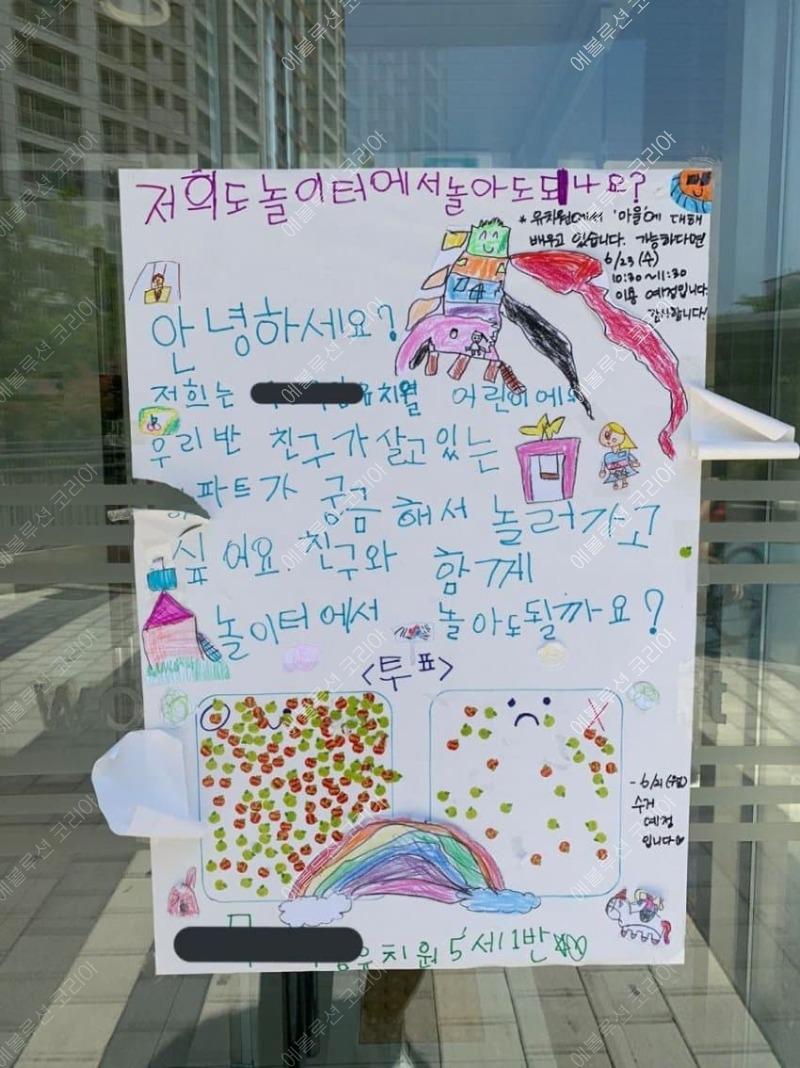 저희도 놀이터에서 놀아도 되나요?
* 유치원에서 '마을'에 대해
배우고 있습니다. 가능하다면
6/23 (수)
10:30~11:30
이용 예정입니다.
감사합니다!
안녕하세요?
저희는 유치원 어린이에요
우리반 친구가 살고 있는
파트가 궁금해서 놀러가고
싶어요. 친구와 함께
놀이터에서 놀아도될까요?
<투표>
O X
- 6/21 (월)
수거
예정
입니다♡
유치원 5세 1반
에볼루션 코리아